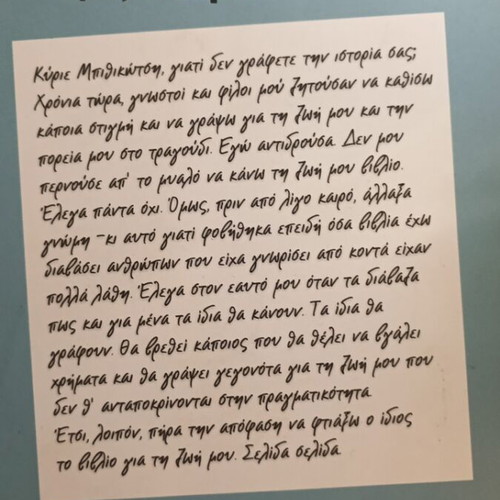 Κύριε Μπιθικώτση, γιατί δεν γράφετε την ιστορία σας;
Χρόνια τώρα, γνωστοί και φίλοι μού ζητούσαν να καθίσω
κάποια στιγμή και να γράψω για τη ζωή μου και την
πορεία μου στο τραγούδι. Εγώ αντιδρούσα. Δεν μου
περνούσε απ' το μυαλό να κάνω τη ζωή μου βιβλίο.
Έλεγα πάντα όχι. Όμως, πριν από λίγο καιρό, άλλαξα
γνώμη – κι αυτό γιατί φοβήθηκα επειδή όσα βιβλία έχω
διαβάσει ανθρώπων που είχα γνωρίσει από κοντά είχαν
πολλά λάθη. Έλεγα στον εαυτό μου όταν τα διάβαζα
πως και για μένα τα ίδια θα κάνουν. Τα ίδια θα
γράφουν. Θα βρεθεί κάποιος που θα θέλει να βγάλει
χρήματα και θα γράψει γεγονότα για τη ζωή μου που
δεν θ' ανταποκρίνονται στην πραγματικότητα.
Έτσι, λοιπόν, πήρα την απόφαση να φτιάξω ο ίδιος
το βιβλίο για τη ζωή μου. Σελίδα σελίδα.